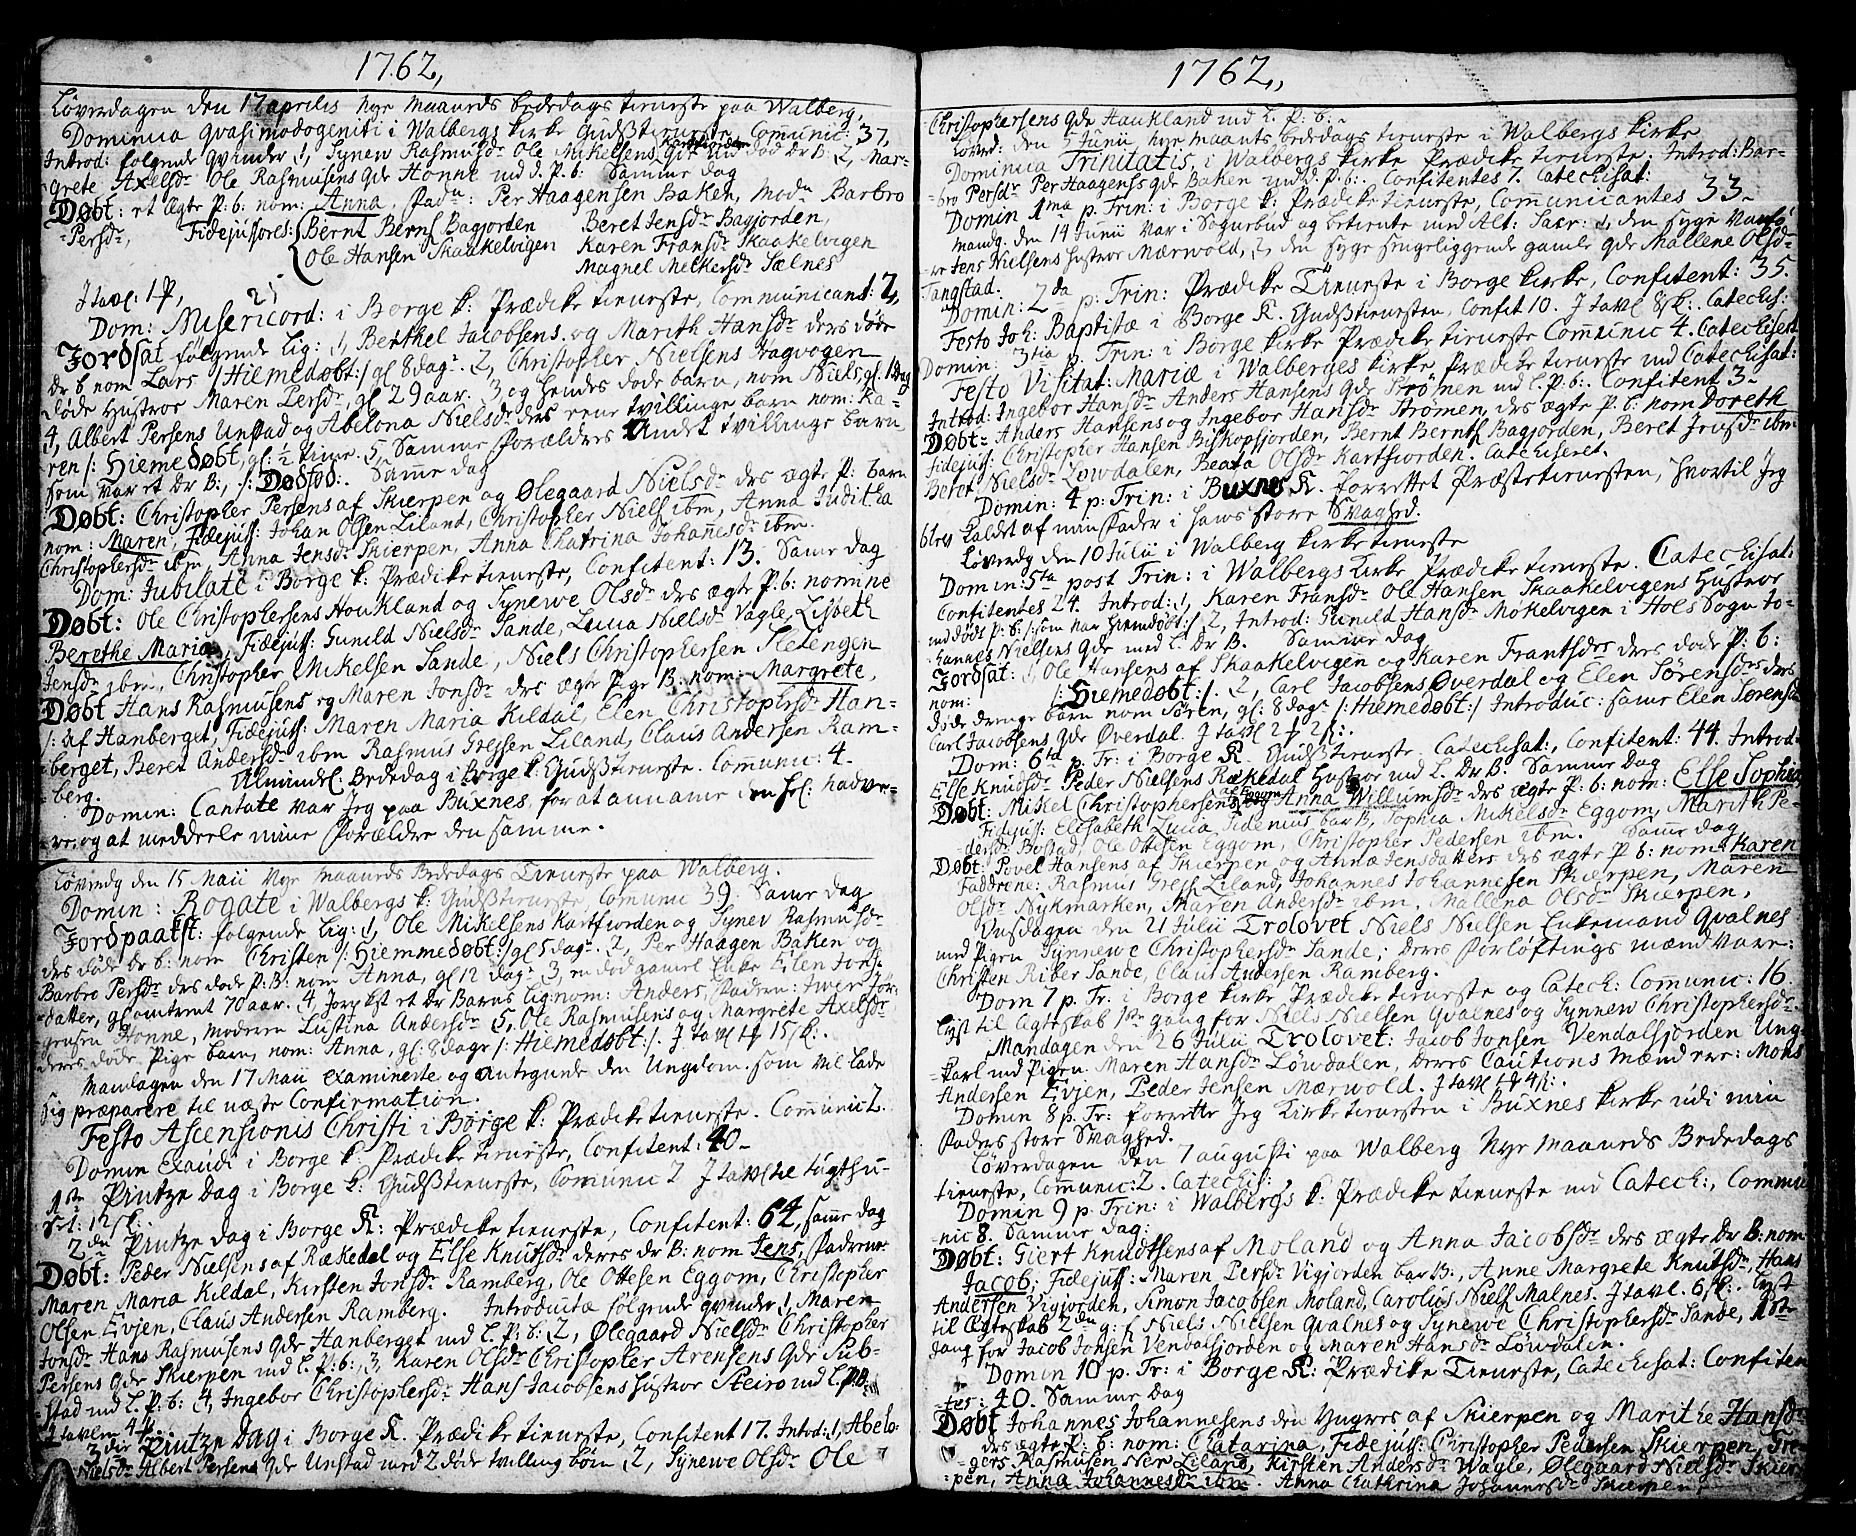 1762,
Løverdagen den 17 aprilis Nye maaneds bededags tieneste paa Walberg,
Dominica Qvasimodogeniti i Walbergs kirke Gudstieneste, Comunic: 37,
Introd: følgende Qvinder 1, Synew Rasmusdr Ole Mikelsens Kartfiorden md død Dr B: 2, Mar-
grete Axelsdr Ole Rasmusens Qde Honne md d. P. b: Samme dag
Døbt: et ægte P: b: nom: Anna, Padr: Per Haagensen Baken, Modr Barbro
Persdr, Fidejussores: Bernt Berns Bagjorden Beret Jensdr Bagjorden,
Ole Hansen Skaakelvigen Karen Fransdr Skaakelvigen
Magnel Melkersdr Sælnes
J tavl: 1 p,
Dom: Misericord: i Borge k: Prædike tieneste, Communicant: 12,
Jordsat følgende Lig: 1, Berthel Jacobsens og Marith Hansdr ders døde
Dr b nom Lars /: Hiemedøbt :/ gl 8 dagr. 2, Christopher Nielsens Hagvogen
døde Hustroe Maren Lersdr, gl 29 aar. 3, og hendes døde barn, nom Niels, gl. 1 dag
4, Albert Persens Unstad og Abelona Nielsdr ders ene tvillinge barn nom: Ka-
ren /: Hiemedøbt, gl: ½ time. 5, Samme Forældres Andet tvillinge barn
som var et Dr B:, /: Dødfød :. Samme dag
Døbt: Christopher Persens af Skierpen og Ølegaard Nielsdr des ægte P: barn
nom: Maren, Fidejuss: Johan Olsen Liland, Christopher Niels ibm, Anna Juditha
Christophersdr ibm, Anna Jensdr Skierpen, Anna Chatrina Johannesdr ibm.
Dom: Jubilate i Borge k: Prædike tieneste, Confitent: 13. Same dag
Døbt: Ole Christophersens Houkland og Synewe Olsdr des ægte P: b: nomine
Berethe Maria, Fidejuss: Gunild Nielsdr Sande, Lucia Nielsdr Vagle, Lisbeth
Jensdr ibm, Christopher Mikelsen Sande, Niels Christophersen Sletengen
Døbt Hans Rasmusens og Maren Jonsdr des ægte Pige B: nom: Margrete,
/: af Hanberget, Fidejuss: Maren Maria Kildal, Elen Christophersdr Han-
berget, Beret Andersdr ibm Rasmus Gregsen Liland, Claus Andersen Ram-
berg. Almindel Bededag i Borge k: Gudstieneste. Comunic: 4-
Domin: Cantate var Jeg paa Buxnes for at anname den hel: nadve-
re, og at meddeele mine Forældre den samme.
Løverdag den 15 Maii Nye maaneds Bededags Tieneste paa Walberg.
Domin: Rogate i Walbergs k: Gudstieneste, Comunic 39. Same dag
Jordpaakst: følgende Lig: 1, Ole Mikelsens Kartfiorden og Synev Rasmusdr
des døde Dr b: nom Christen /: Hiemmedøbt :/ gl 5 dagr. 2, Per Haagen Baken og
Barbro Persdr des døde P: B: nom Anna, gl 12 dagr 3, en død gamel Enke Elen Jons
datter, gl omtrent 70 aar. 4, Jordpkst et Dr Barns lig, nom: Anders, Padren: Iver Jør-
gensen Honne, moderen Lustina Andersdr 5, Ole Rasmusens og Margrete Axelsdr
deres døde Pige barn, nom: Anna, gl: 8 dage /: Hiemedøbt :/. J tavl 1 p 15 sk:.
Mandagen den 17 Maii examinerte og antegnede den Ungdom som vil lade
sig præparere til næste Confirmation.
Festo Ascensionis Christi i Borge k: Prædike tieneste. Comunic 2.
Domin Exaudi i Borge k: Prædike tieneste, Confitent: 40-
1ste Pintze Dag i Borge k: Gudstieneste, Comunic 2 J tavl til tugthu-
set: 12 sk.
2den Pintze dag i Borge K: Prædike tieneste, Confitent: 64, same dag
Døbt: Peder Nielsens af Rækedal og Else Knutsdr deres Dr B: nom Jens, Padrene
Maren Maria Kildal, Kirsten Jonsdr Ramberg, Ole Ottesen Eggom, Christopher
Olsen Evjen, Claus Andersen Ramberg. Introducta følgende qvinder 1, Maren
Jonsdr Hans Rasmusens Qde Hanberget md L. P: b: 2, Ølegaard Nielsdr Christopher
Persens Qde Skierpen md L. P: b: 3, Karen Olsdr Christopher Arensens Qde Sub-
stad md L. P: b: 4, Ingebor Christophersdr Hans Jacobsens Hustroe Steiro md L P B
J tavlen 4 sk
3die Pintze Dag i Borge K. Prædike tieneste, Confitent 17. Introd: 1, Abelo-
Nielsdr Albert Persens Qde Unstad med 2 døde tvilling børn 2, Synewe Olsdr Ole
1762,
Christophersens Qde Haukland md L. P: b:.
Løverd: den 5 Junii, nye maanets bededags tieneste i Walbergs kirke
Dominica Trinitatis, i Walbergs kirke Prædike tieneste. Introd: Bar-
bro Persdr Per Haagenss Qde Baken md d. P: b:. Confitentes 7. Catechisat:
Domin 1ma p. Trin: i Borge k: Prædike tieneste, Communicantes 33-
mandg. den 14 Junii var i Sognebud og betiente med Alt: Sacr: 1, den syge
Jens Nielsens Hustroe Mærwold, 2, den syge sengeliggende gamle Qde Mallene Olsdr
Tangstad.
Domin: 2da p. Trin: Prædike Tieneste i Borge kirke, Confitent: 35.
Festo Joh: Baptistæ i Borge K. Gudstienesten, Confit 10. J tavl 8 sk:. Catechis:
Domin: 3tia p. Trin: i Borge kirke Prædike tieneste Communic 4. Catechisat
Festo Visitat: Mariæ i Walberges kirke Prædike tieneste md Catechisat:
Introd: Ingebor Hansdr Anders Hansens Qde Strømen md L. P: b:. Confitent 3-
Døbt: Anders Hansens og Ingebor Hansdr Strømen, des ægte P: b: nom Doreth
Fidejuss: Christopher Hansen Biskopsjorden, Bernt Bernts Bagjorden, Beret Jensdr ibm
Beret Nielsdr Løwdalen, Beata Olsdr Kartfiorden. Catechiseret.
Domin: 4 p: Trin: i Buxnes K. forrettet Præstetienesten, hvortil Jeg
blev kaldet af min Fader i hans store Svaghed.
Løverdg den 10 Julii i Walberg kirketieneste
Domin: 5ta post Trin: i Walbergs Kirke Prædike tieneste. Catechisat:
Confitentes 24. Introd: 1, Karen Fransdr Ole Hansen Skaakelvigens Hustroe
md dødt P: b: /: som var hiemdøbt :/ 2, Introd: Gunild Hansdr Mokelvigen i Hols Sogn Jo-
hannes Nielsens Qde med L. Dr B. Samme dag
Jordsat: 1, Ole Hansens af Skaakelvigen og Karen Frantsdrs ders døde P: b:
nom: /: Hiemedøbt :/. 2, Carl Jacobsens Øverdal og Elen Sørensdrs ders
døde drenge barn nom Søren, gl: 8 dagr /: Hiemedøbt :/ Introduc: same Elen Sørensdr
Carl Jacobsens Qde Øverdal. J tavl 2 p 2 sk:.
Dom: 6ta p. Tr: i Borge K. Gudstieneste. Catechisat:, Confitent: 44. Introd:
Else Knudsdr Peder Nielsens Rækedal Hustroe md L. Dr B. Same Dag
Døbt: Mikel Christophersens af Eggom og Anna Willumsdr des ægte P: b: nom: Else Sophia
Fidejuss: Elisabeth Lucia Fidenius bar B, Sophia Mikelsdr Eggom, Marith Pe-
dersdr Bostad, Ole Ottesen Eggom, Christopher Pedersen ibm. Same dag
Døbt: Povel Hansens af Skierpen og Anna Jensdatters des ægte P b: nom: Karen
Faddrene: Rasmus Gregs Liland, Johannes Johannesen Skierpen, Maren
Olsdr Nykmarken, Maren Andersdr ibm, Mallena Olsdr Skierpen,
Onsdagen den 21 Julii Trolovet Niels Nielsen Enkemand Qvalnes
med Pigen Synnewe Christophersdr Sande; deres Forløftings mænd vare:
Christen Riber Sande, Claus Andersen Ramberg.
Dom 7 p. Tr. i Borge kirke Prædike tieneste og Catech: Communic: 16
lyst til Egteskab 1ste gang for Niels Nielsen Qvalnes og Synnew Christophersdr.
Mandagen den 26 Julii Trolovet: Jacob Jonsen Vendalsjorden Ung-
karl md Pigen Maren Hansdr Løwdalen, deres Cautions Mænd ere: Mons
Andersen Evjen, Peder Jensen Mærwold. J tavl 1 p 4 sk:.
Domin 8 p. Tr: forrette Jeg Kirketienesten i Buxnes kirke udi min
Faders store Svaghed.
Løverdagen den 7 augusti paa Walberg Nye Maaneds Bededags
tieneste, Communic: 2. Catechis:,
Domin 9 p. Trin: i Walbergs k: Prædike tieneste md Catech:, Commu
nic 8. Samme dag:
Døbt: Giert Knudtsens af Moland og Anna Jacobsdr des ægte Dr B: nom:
Jacob: Fidejuss: Maren Persdr Vigjorden bar B:, Anne Margrete Knutsdr, Hans
Andersen Vigjorden, Simon Jacobsen Moland, Carolus Niels Malnes. J tavl. 6 sk:. lyst
til Egteskab 2den g: f Niels Nielsen Qvalnes og Synewe Christophersdr Sande, 1ste
gang for Jacob Jonsen Vendalsjorden og Maren Hansdr Løwdalen.
Domin 10 p. Tr: i Borge K: Prædike Tieneste, Catechisat: Confiten
tes: 40. Samme Dag
Døbt Johannes Johannesens den Yngres af Skierpen og Marithe Hansdr
des ægte P: b: nom: Chatarina, Fidejuss: Christopher Pedersen Skierpen, Gre-
gers Rasmusen Ner Liland, Kirsten Andersdr Wagle, Ølegaard Nielsdr Skier-
pen, Anna Johannesdr ibm. Anna Chathrina Johannesdr Skierpen,